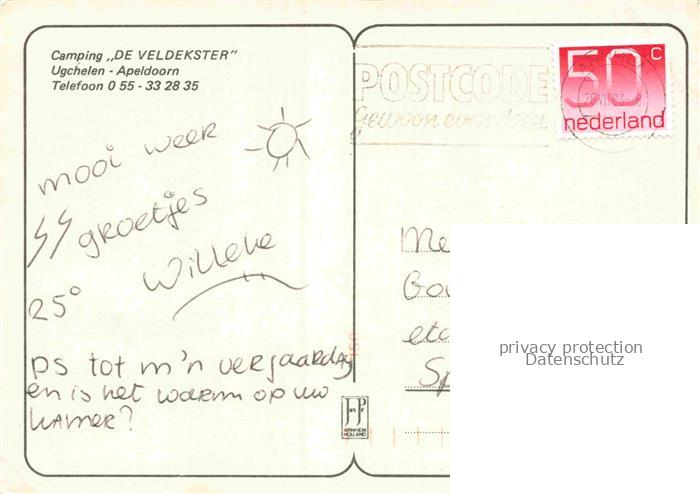 Camping „DE VELDEKSTER"
Ugchelen - Apeldoorn
Telefoon 0 55 - 33 28 35
POSTCODE
Gewoon even doen.
50 c
nederland
mooi weer
groetjes
Willeke
25°
PS tot m'n verjaardag
en is het warm op uw
kamer?
Me
Sp
privacy protection
Datenschutz
ARNHEM
HOLLAND